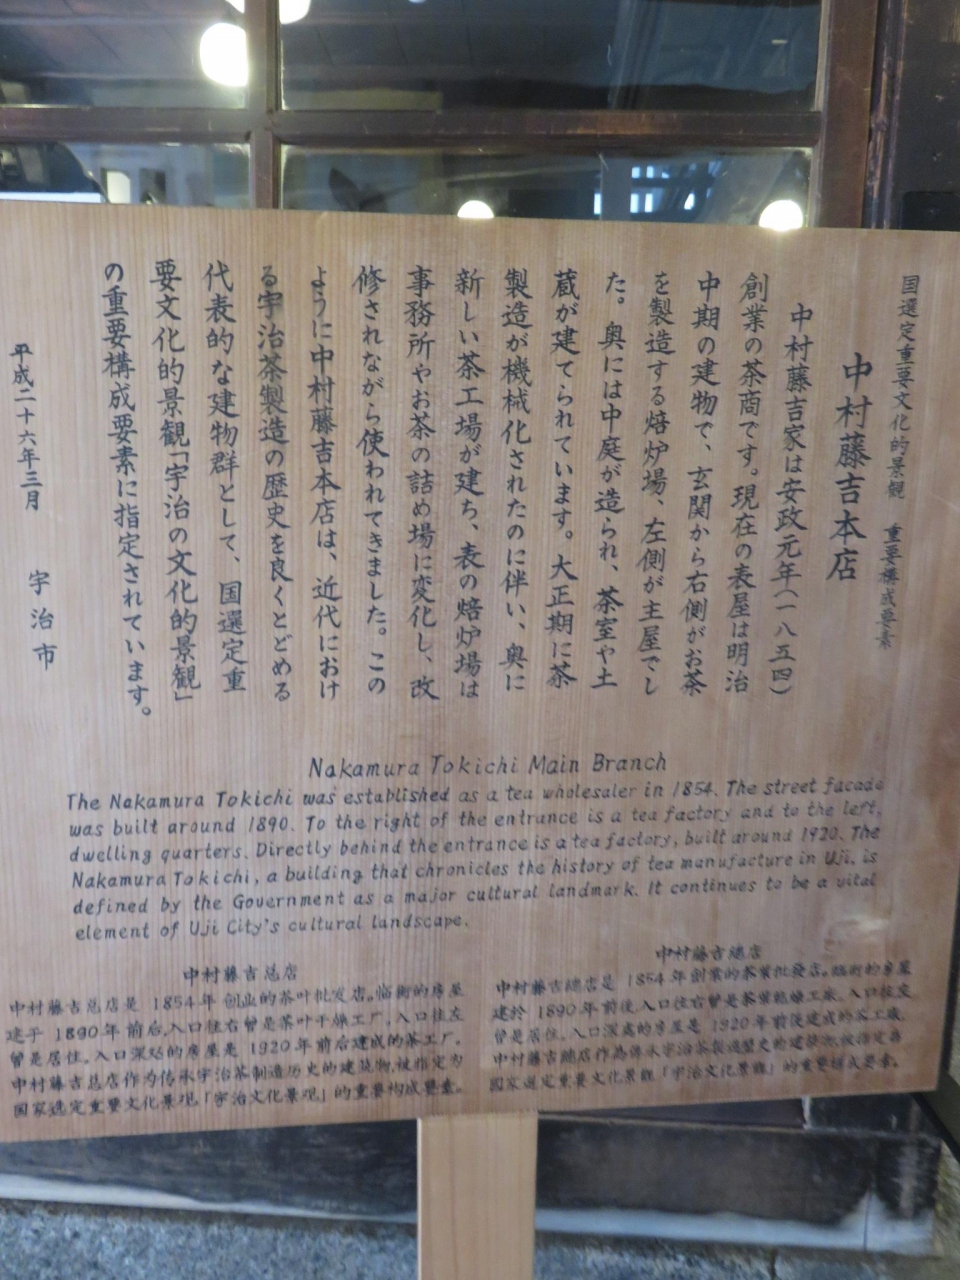 国選定重要文化的景観 重要構成要素
中村藤吉本店
中村藤吉家は安政元年(一八五四)
創業の茶商です。現在の表屋は明治
中期の建物で、玄関から右側がお茶
を製造する焙炉場、左側が主屋でし
た。奥には中庭が造られ、茶室や土
蔵が建てられています。大正期に茶
製造が機械化されたのに伴い、奥に
新しい茶工場が建ち、表の焙炉場は
事務所やお茶の詰め場に変化し、改
修されながら使われてきました。この
ように中村藤吉本店は、近代におけ
る宇治茶製造の歴史を良くとどめる
代表的な建物群として、国選定重
要文化的景観「宇治の文化的景観」
の重要構成要素に指定されています。
平成二十六年三月 宇治市
Nakamura Tokichi Main Branch
The Nakamura Tokichi was established as a tea wholesaler in 1854. The street facade
was built around 1890. To the right of the entrance is a tea factory and to the left,
dwelling quarters. Directly behind the entrance is a tea factory, built around 1920. The
Nakamura Tokichi, a building that chronicles the history of tea manufacture in Uji, is
defined by the Government as a major cultural landmark. It continues to be a vital
element of Uji City's cultural landscape.
中村藤吉总店
中村藤吉总店是 1854年 创业的茶叶批发店。临街的房屋
建于 1890年 前后,入口往右曾是茶叶干燥工厂,入口往左
曾是居住。入口深处的房屋是 1920年前后建成的茶工厂。
中村藤吉总店作为传承宇治茶制造历史的建筑物,被指定为
国家选定重要文化景观「宇治文化景观」的重要构成要素。
中村藤吉總店
中村藤吉總店是 1854年創業的茶葉批發店。臨街的房屋
建於 1890年前後,入口往右曾是茶葉乾燥工廠,入口往左
曾是居住。入口深處的房屋是 1920年前後建成的茶工廠。
中村藤吉總店作為傳承宇治茶製造歷史的建築物,被指定為
國家選定重要文化景觀「宇治文化景觀」的重要構成要素。